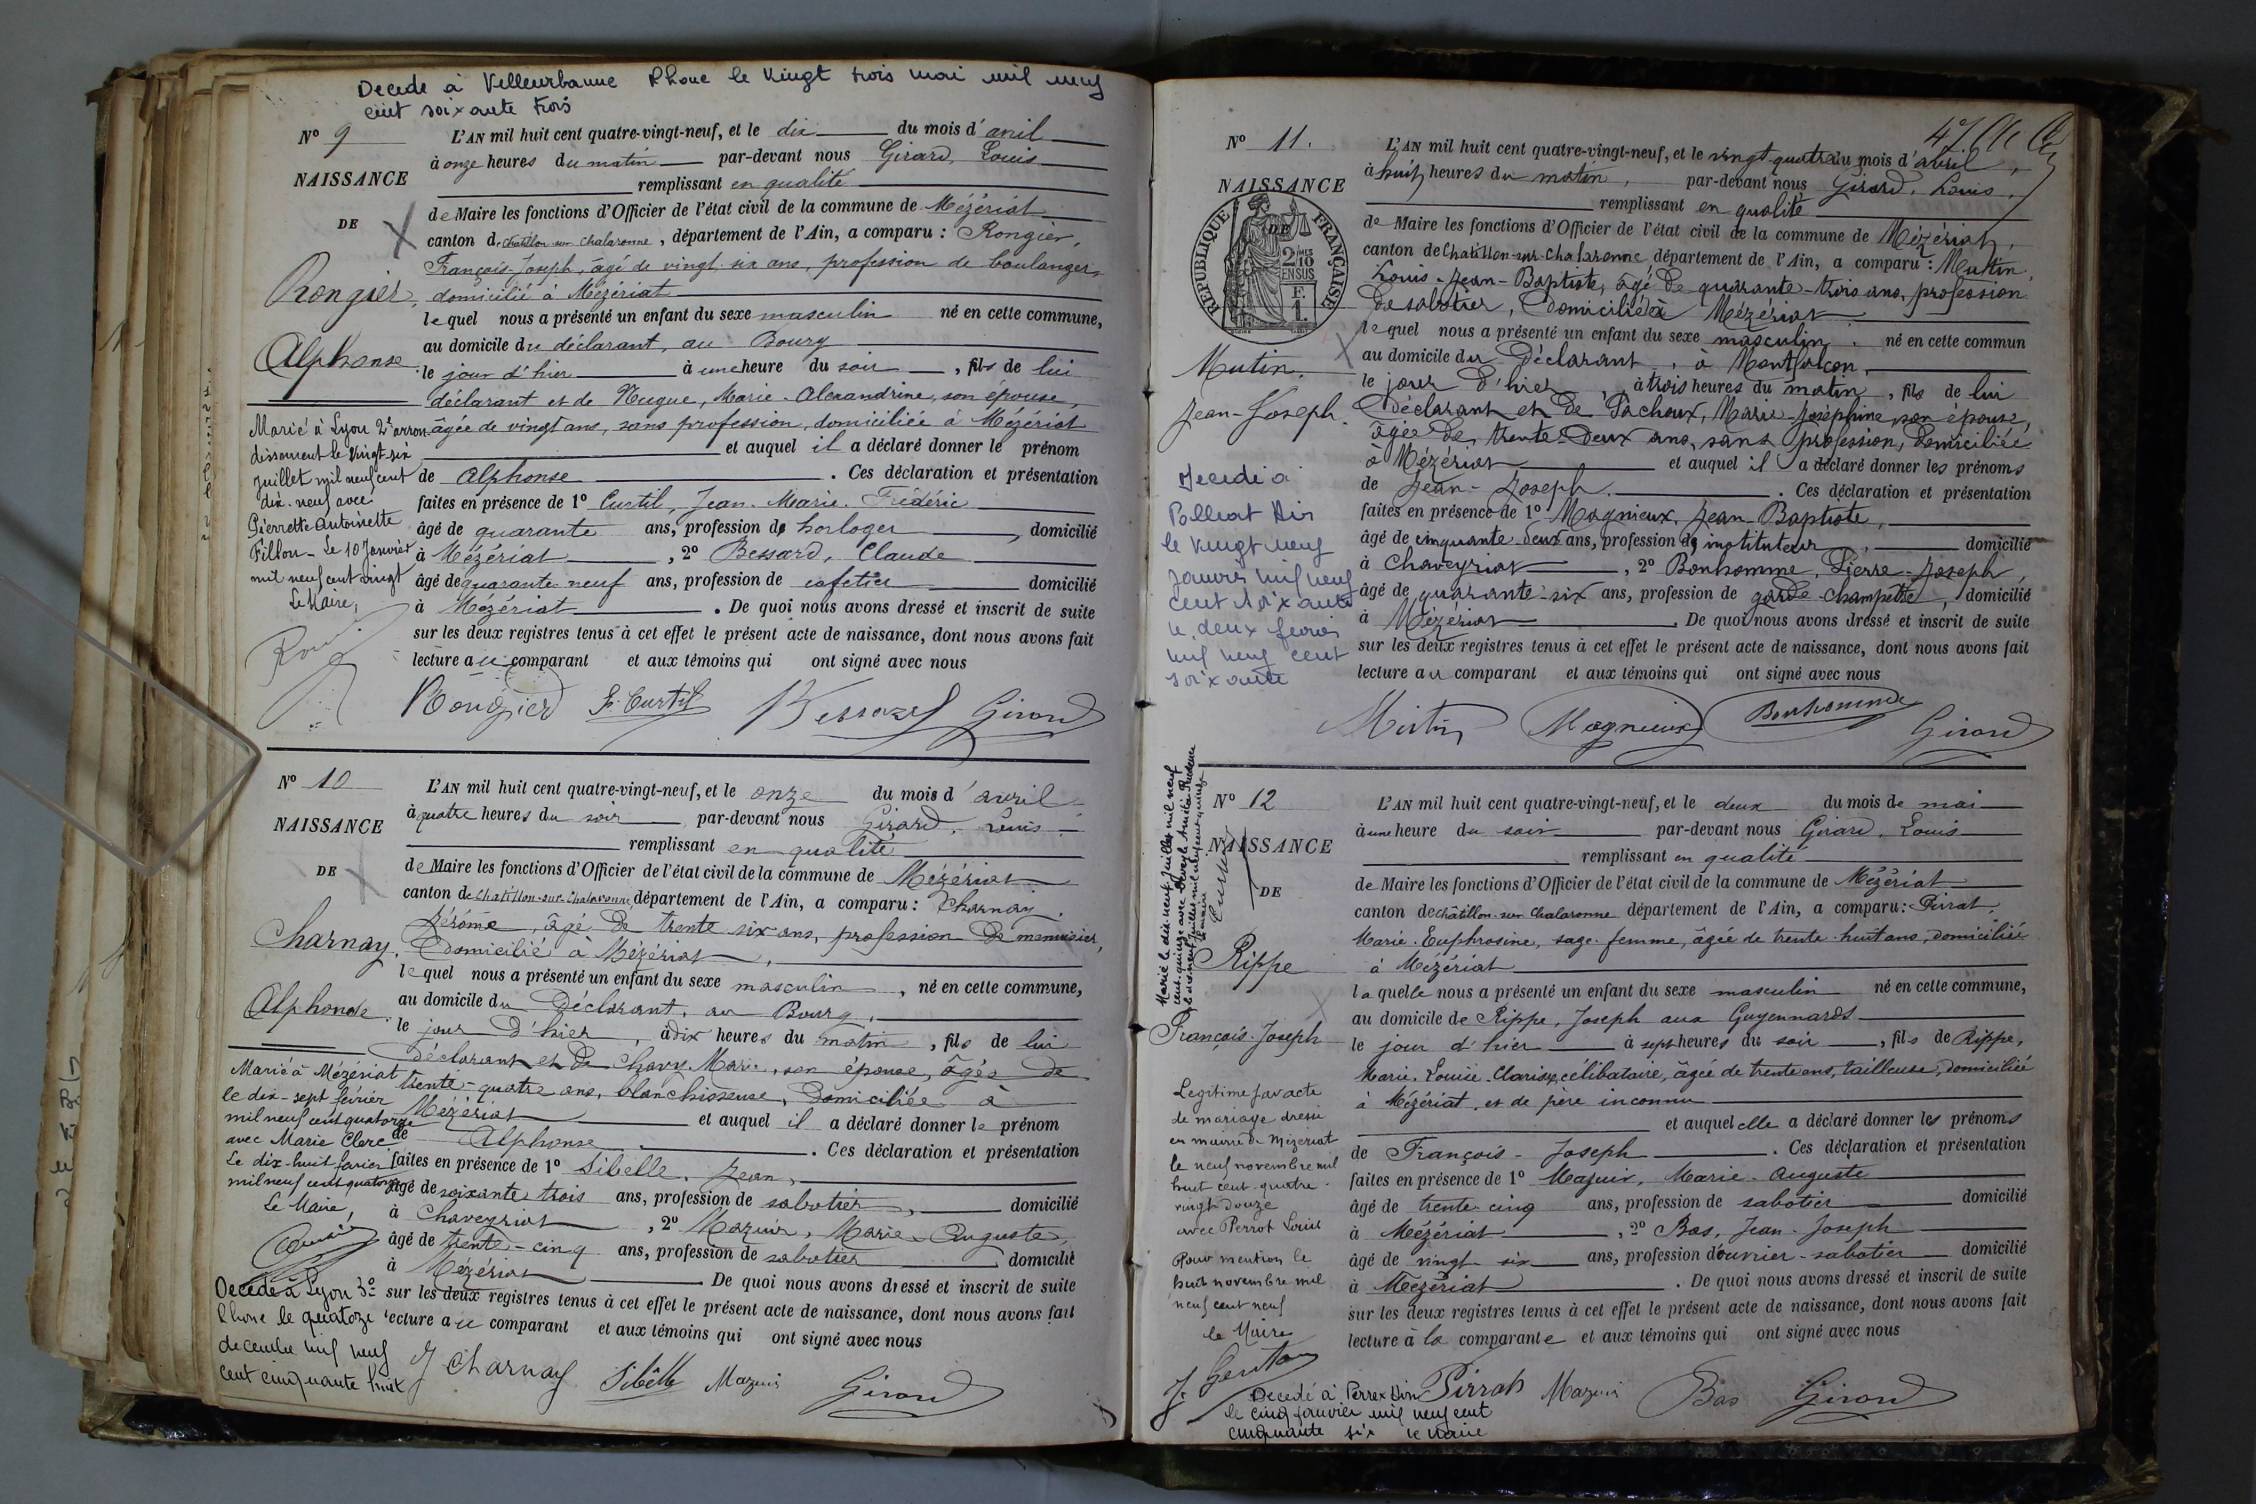 Decede à Villeurbanne Rhone le vingt trois mai mil neuf
cent soixante trois
N° 9
NAISSANCE
DE
Rongier,
Alphonse
L'AN mil huit cent quatre-vingt-neuf, et le dix du mois d'avril
à onze heures du matin par-devant nous Girard, Louis
remplissant en qualité
de Maire les fonctions d'Officier de l'état civil de la commune de Mézériat
canton de Chatillon sur Chalaronne, département de l'Ain, a comparu : Rongier,
François-Joseph, âgé de vingt six ans, profession de boulanger,
domicilié à Mézériat
lequel nous a présenté un enfant du sexe masculin né en cette commune,
au domicile du déclarant, au Bourg
le jour d'hier à une heure du soir, fils de lui
déclarant et de Nugue, Marie-Alexandrine, son épouse,
âgée de vingt ans, sans profession, domiciliée à Mézériat
et auquel il a déclaré donner le prénom
de Alphonse. Ces déclaration et présentation
faites en présence de 1° Curtil, Jean-Marie-Frédéric
âgé de quarante ans, profession de horloger, domicilié
à Mézériat, 2° Bessard, Claude
âgé de quarante neuf ans, profession de cafetier domicilié
à Mézériat. De quoi nous avons dressé et inscrit de suite
sur les deux registres tenus à cet effet le présent acte de naissance, dont nous avons fait
lecture au comparant et aux témoins qui ont signé avec nous
Rongier F. Curtil Bessard Girard
Marié à Lyon 2e arron
dissement le vingt-six
juillet mil neuf cent
dix-neuf avec
Pierrette Antoinette
Fillon - Le 10 Janvier
mil neuf cent vingt
Le Maire,
N° 10
NAISSANCE
DE
Charnay,
Alphonse
L'AN mil huit cent quatre-vingt-neuf, et le onze du mois d'avril
à quatre heures du soir par-devant nous Girard, Louis
remplissant en qualité
de Maire les fonctions d'Officier de l'état civil de la commune de Mézériat
canton de Chatillon-sur-Chalaronne, département de l'Ain, a comparu : Charnay,
Jérôme, âgé de trente six ans, profession de menuisier,
domicilié à Mézériat,
lequel nous a présenté un enfant du sexe masculin, né en cette commune,
au domicile du déclarant, au Bourg,
le jour d'hier, à dix heures du matin, fils de lui
déclarant et de Chavy, Marie, son épouse, âgée de
trente-quatre ans, blanchisseuse, domiciliée à
Mézériat et auquel il a déclaré donner le prénom
de Alphonse. Ces déclaration et présentation
faites en présence de 1° Sibelle, Jean,
âgé de soixante trois ans, profession de sabotier, domicilié
à Chaveyriat, 2° Mazuir, Marie-Auguste,
âgé de trente-cinq ans, profession de sabotier domicilié
à Mézériat De quoi nous avons dressé et inscrit de suite
sur les deux registres tenus à cet effet le présent acte de naissance, dont nous avons fait
lecture au comparant et aux témoins qui ont signé avec nous
J Charnay Sibelle Mazuir Girard
Marié à Mézériat
le dix-sept février
mil neuf cent quatorze
avec Marie Clerc
Le dix-huit février
mil neuf cent quatorze
Le Maire,
Decedé à Lyon 3e
Rhone le quatorze
decembre mil neuf
cent cinquante huit
N° 11.
NAISSANCE
DE
RÉPUBLIQUE FRANÇAISE
2/10 EN SUS
Mutin,
Jean-Joseph.
L'AN mil huit cent quatre-vingt-neuf, et le vingt-quatre du mois d'avril,
à huit heures du matin, par-devant nous Girard, Louis,
remplissant en qualité
de Maire les fonctions d'Officier de l'état civil de la commune de Mézériat,
canton de Chatillon-sur-Chalaronne département de l'Ain, a comparu : Mutin,
Louis-Jean-Baptiste, âgé de quarante-trois ans, profession
de sabotier, domicilié à Mézériat
lequel nous a présenté un enfant du sexe masculin, né en cette commun
au domicile du déclarant, à Montfalcon,
le jour d'hier, à trois heures du matin, fils de lui
déclarant et de Pachoux, Marie-Joséphine son épouse,
âgée de trente-deux ans, sans profession, domiciliée
à Mézériat et auquel il a déclaré donner les prénoms
de Jean-Joseph. Ces déclaration et présentation
faites en présence de 1° Magnieux, Jean-Baptiste,
âgé de cinquante-deux ans, profession de instituteur, domicilié
à Chaveyriat, 2° Bonhomme, Pierre-Joseph,
âgé de quarante-six ans, profession de garde-champêtre, domicilié
à Mézériat. De quoi nous avons dressé et inscrit de suite
sur les deux registres tenus à cet effet le présent acte de naissance, dont nous avons fait
lecture au comparant et aux témoins qui ont signé avec nous
Mutin Magnieux Bonhomme Girard
Decedé à
Polliat Ain
le vingt neuf
janvier mil neuf
cent soixante
le deux fevrier
mil neuf cent
soixante
N° 12
NAISSANCE
DE
Rippe
François-Joseph
L'AN mil huit cent quatre-vingt-neuf, et le deux du mois de mai
à une heure du soir par-devant nous Girard, Louis
remplissant en qualité
de Maire les fonctions d'Officier de l'état civil de la commune de Mézériat
canton de Châtillon-sur Chalaronne département de l'Ain, a comparu : Pirrat,
Marie-Euphrosine, sage-femme, âgée de trente-huit ans, domiciliée
à Mézériat
laquelle nous a présenté un enfant du sexe masculin né en cette commune,
au domicile de Rippe, Joseph aux Guyennards
le jour d'hier à sept heures du soir, fils de Rippe,
Marie-Louise-Clarisse, célibataire, âgée de trente ans, tailleuse, domiciliée
à Mézériat, et de père inconnu
et auquel elle a déclaré donner les prénoms
de François-Joseph. Ces déclaration et présentation
faites en présence de 1° Mazuir, Marie-Auguste
âgé de trente-cinq ans, profession de sabotier domicilié
à Mézériat, 2° Bas, Jean-Joseph
âgé de vingt-six ans, profession d'ouvrier-sabotier domicilié
à Mézériat. De quoi nous avons dressé et inscrit de suite
sur les deux registres tenus à cet effet le présent acte de naissance, dont nous avons fait
lecture à la comparante et aux témoins qui ont signé avec nous
Pirrat Mazuir Bas Girard
Marié le dix-neuf juillet mil neuf
cent quinze avec
Legitimé par acte
de mariage dressé
en mairie de Mézériat
le neuf novembre mil
huit cent quatre-
vingt douze
avec Perrot Louis
Pour mention le
huit novembre mil
neuf cent neuf
le Maire
Decedé à Perrex Ain
le cinq janvier mil neuf cent
cinquante six le Maire